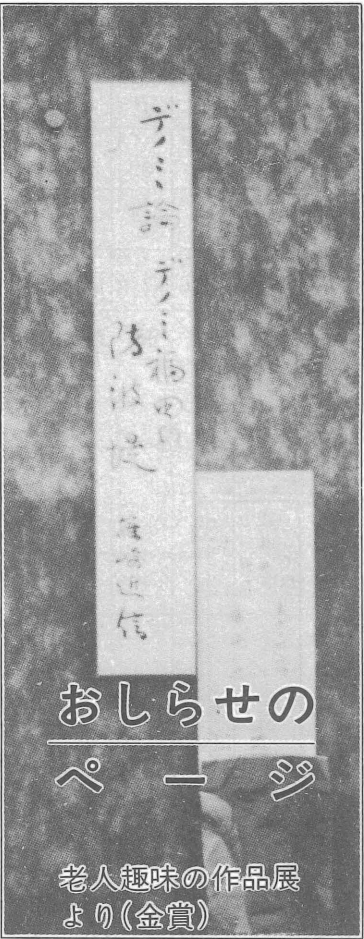 デノミ論 デノミ福田の
防波堤
おしらせの
ページ
老人趣味の作品展
より(金賞)